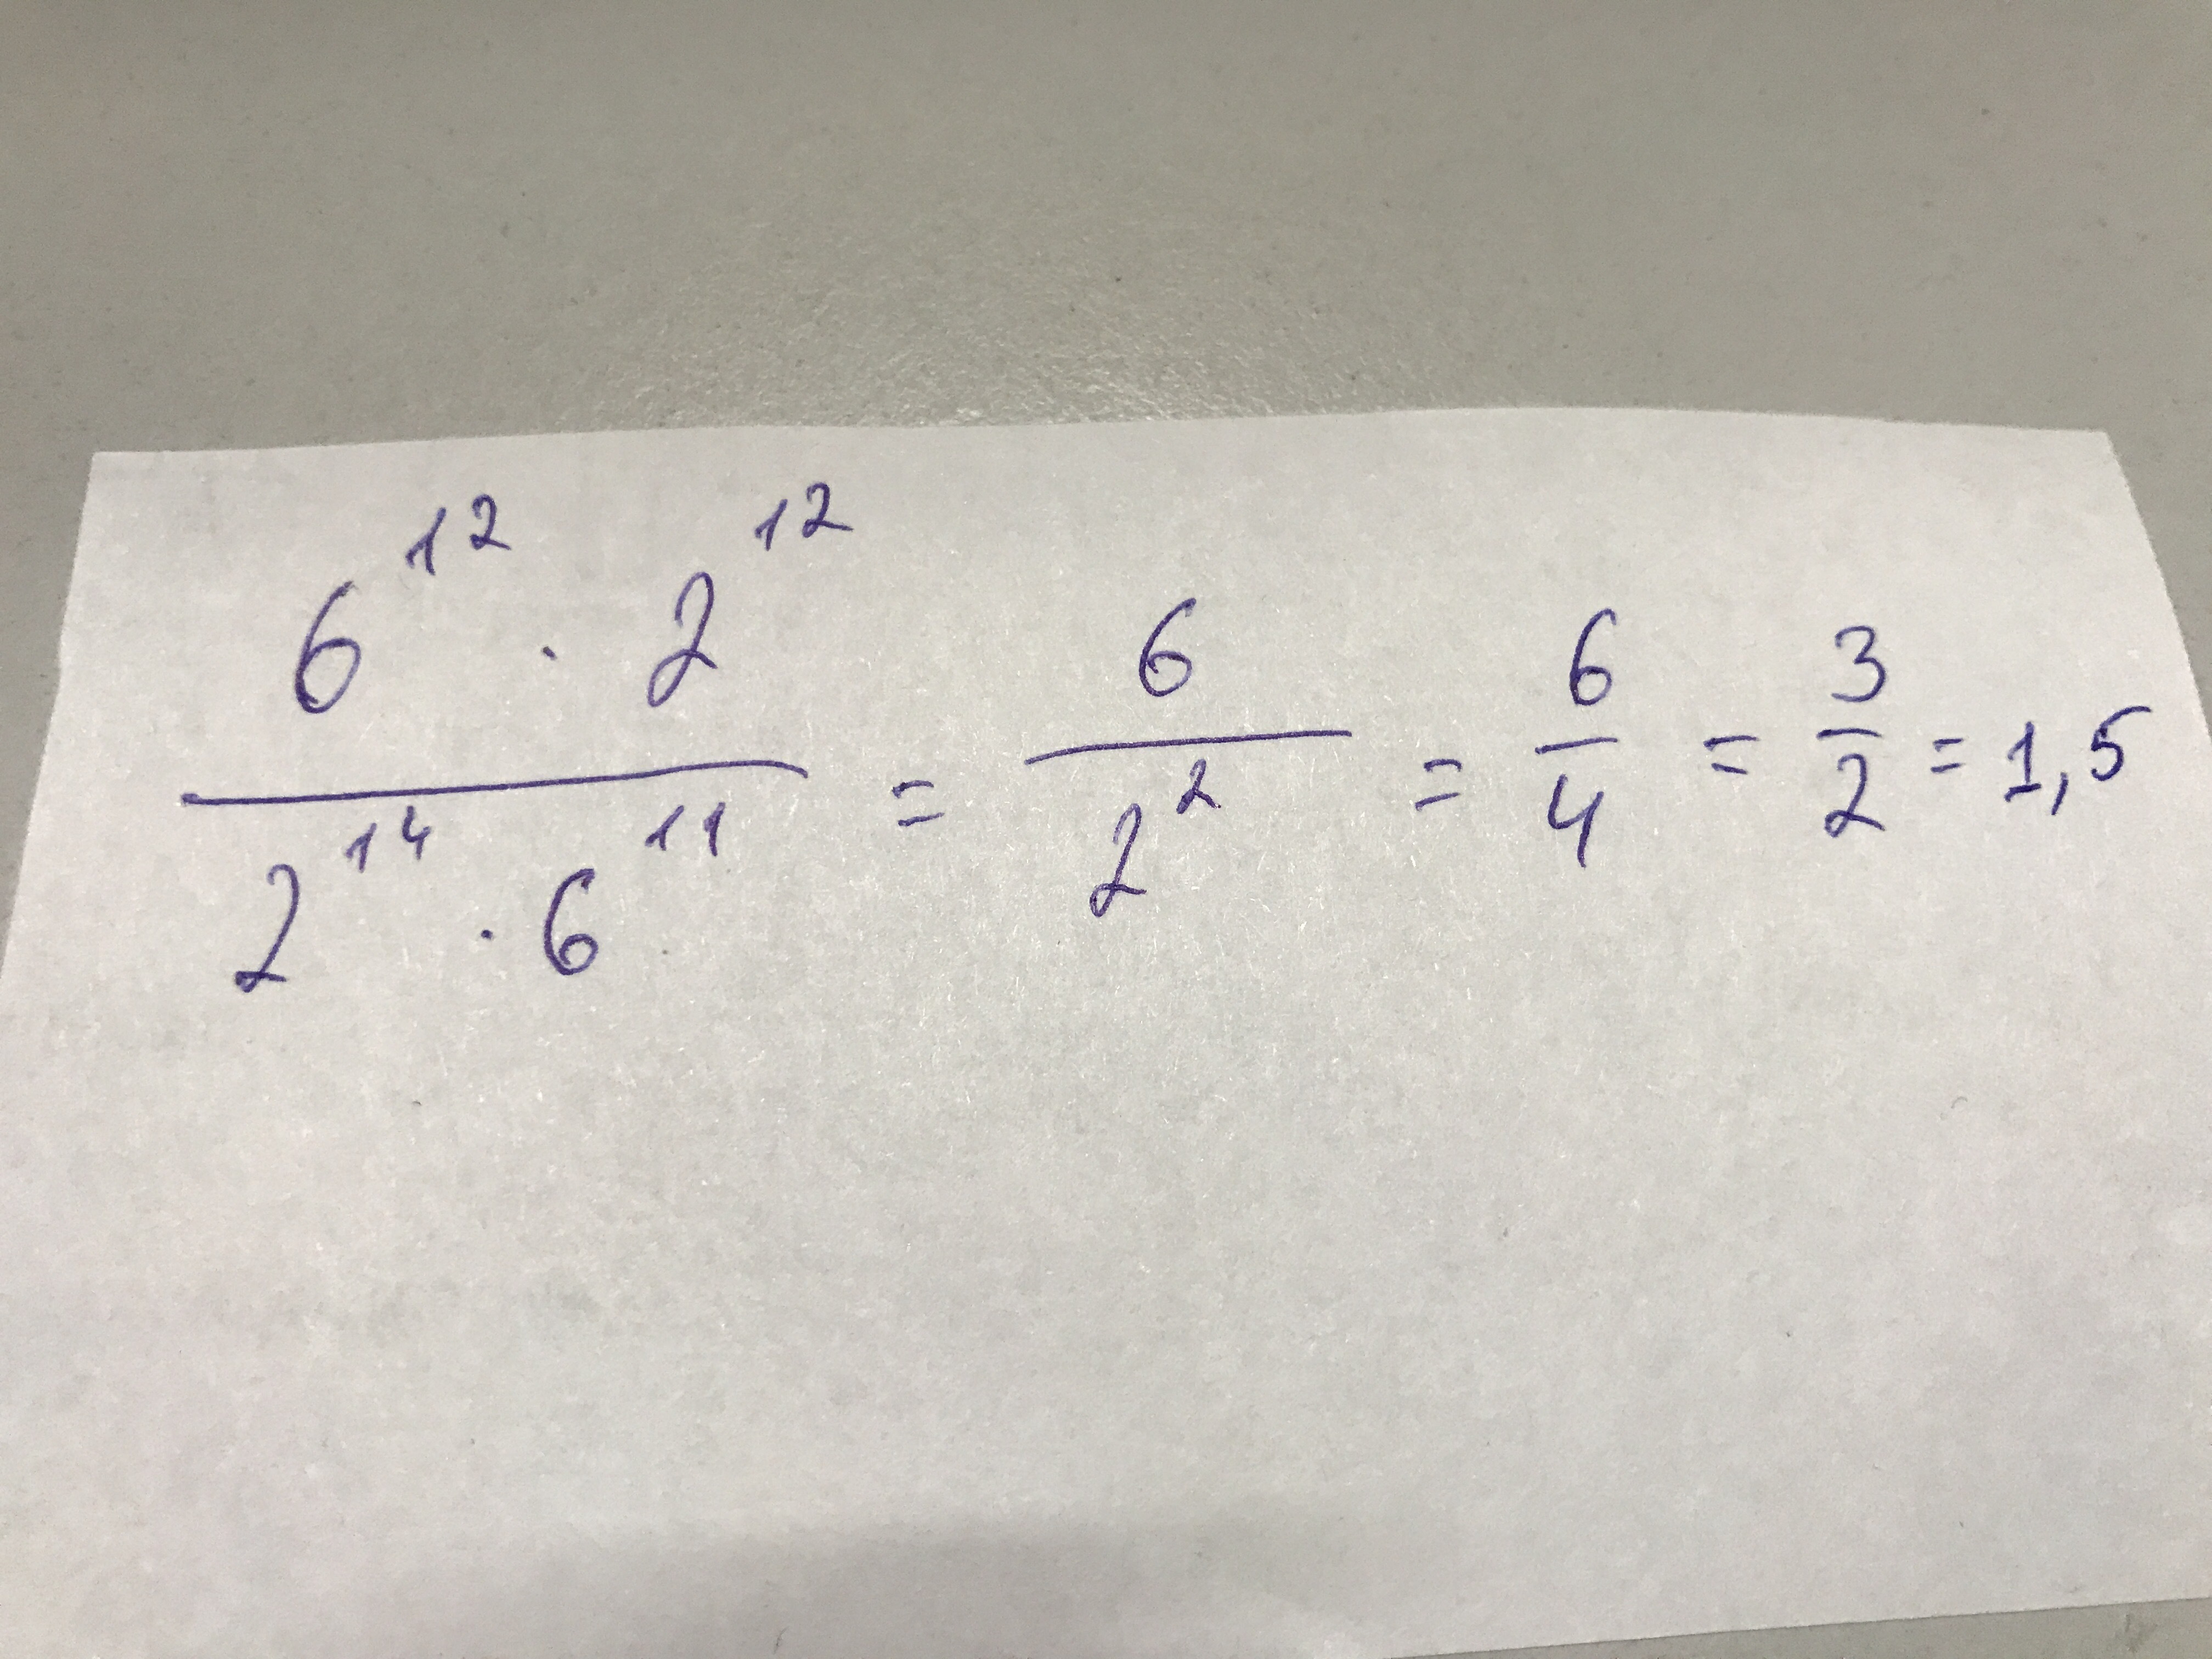 6^12 · 2^12 / 2^14 · 6^11 = 6 / 2^2 = 6/4 = 3/2 = 1,5